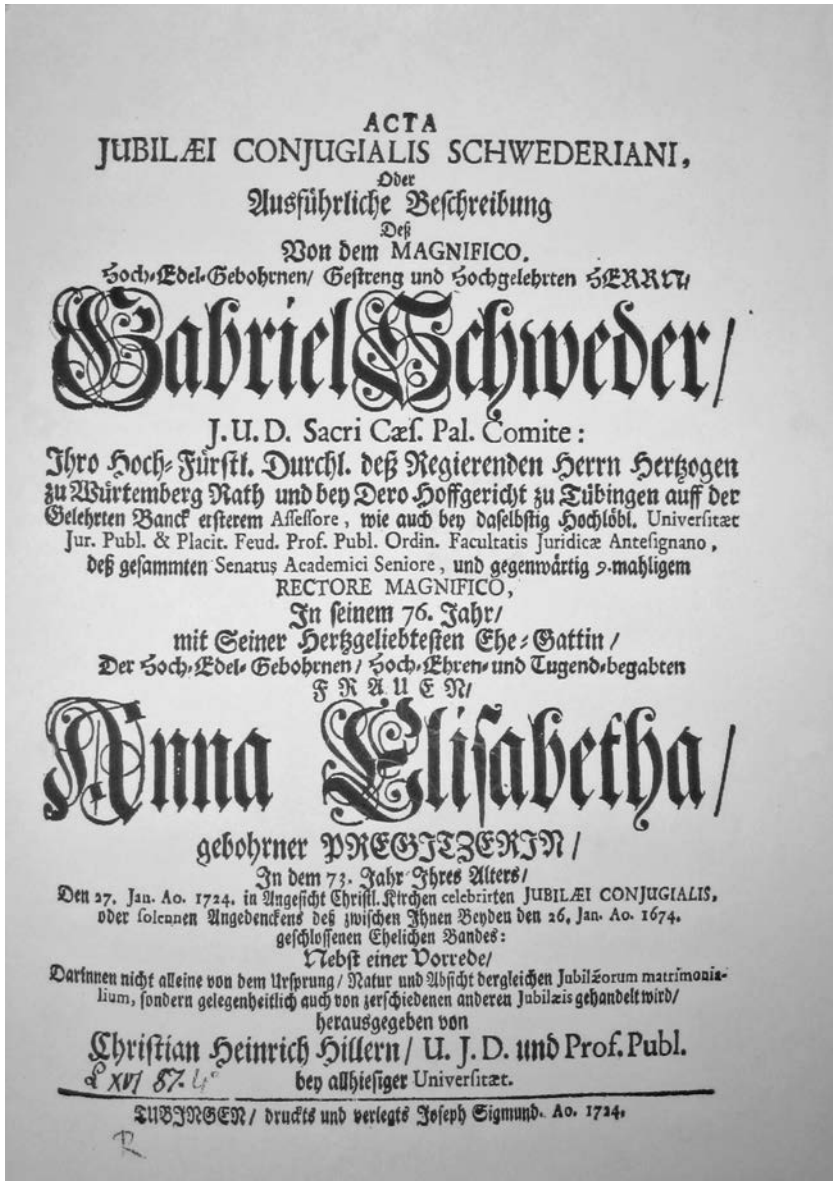 ACTA
JUBILÆI CONJUGIALIS SCHWEDERIANI,
Oder
Ausführliche Beschreibung
Deß
Von dem MAGNIFICO.
Hoch-Edel-Gebohrnen/ Gestreng und Hochgelehrten HERRN/
Gabriel Schweder/
J. U. D. Sacri Cæs. Pal. Comite:
Ihro Hoch-Fürstl. Durchl. deß Regierenden Herrn Hertzogen
zu Würtemberg Rath und bey Dero Hoffgericht zu Tübingen auff der
Gelehrten Banck ersterem Assessore, wie auch bey daselbstig Hochlöbl. Universitæt
Jur. Publ. & Placit. Feud. Prof. Publ. Ordin. Facultatis Juridicæ Antesignano,
deß gesammten Senatus Academici Seniore, und gegenwärtig 9.mahligem
RECTORE MAGNIFICO,
In seinem 76. Jahr/
mit Seiner Hertzgeliebtesten Ehe-Gattin/
Der Hoch-Edel-Gebohrnen/ Hoch-Ehren- und Tugend-begabten
FRAUEN/
Anna Elisabetha/
gebohrner PREGITZERIN/
In dem 73. Jahr Ihres Alters/
Den 27. Jan. Ao. 1724. in Angesicht Christl. Kirchen celebrirten JUBILÆI CONJUGIALIS,
oder solennen Angedenckens deß zwischen Ihnen Beyden den 26. Jan. Ao. 1674.
geschlossenen Ehelichen Bandes:
Nebst einer Vorrede/
Darinnen nicht alleine von dem Ursprung/ Natur und Absicht dergleichen Jubilæorum matrimonia-
lium, sondern gelegenheitlich auch von zerschiedenen anderen Jubilæis gehandelt wird/
herausgegeben von
Christian Heinrich Hillern/ U. J. D. und Prof. Publ.
bey allhiesiger Universitæt.
L XVI 87. 4°
TUBINGEN/ druckts und verlegts Joseph Sigmund. Ao. 1724.
R